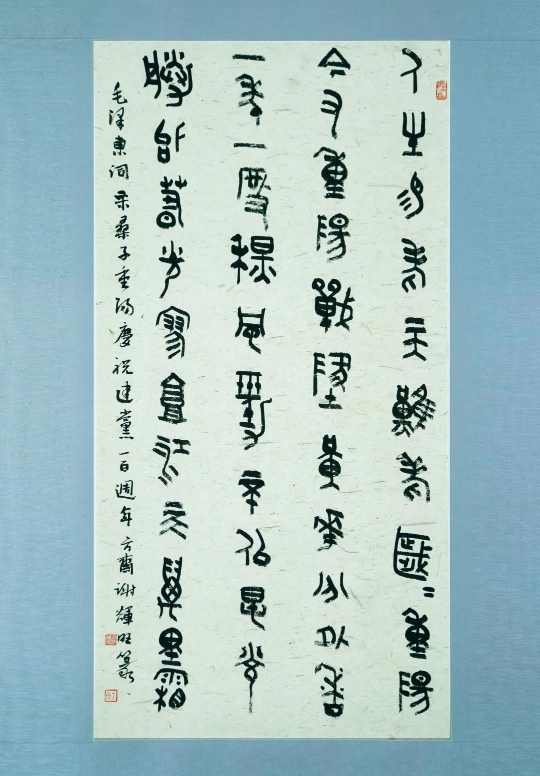 人生易老天難老歲〻重陽
今又重陽戰地黃華分外香
一年一度秋風勁不似春光
勝似春光寥廓江天萬里霜
毛澤東詞采桑子重陽慶祝建黨一百週年方齋謝輝旺篆